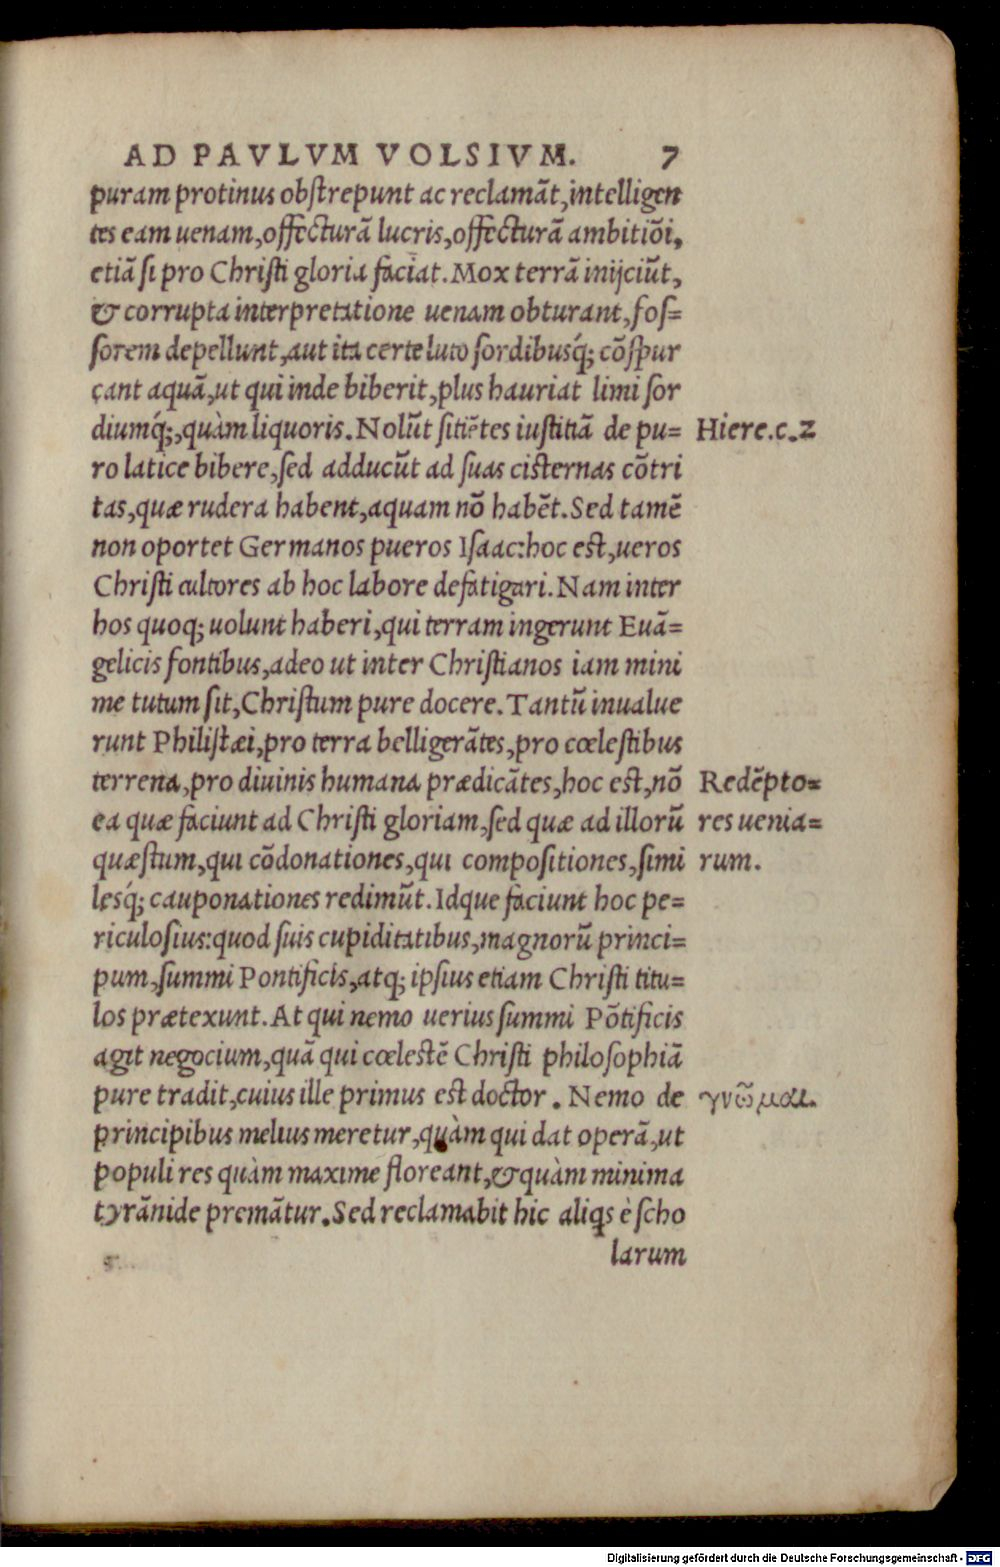 AD PAVLVM VOLSIVM. 7
puram protinus obſtrepunt ac reclamãt,intelligen
tes eam uenam,offecturã lucris,offecturã ambitiõi,
etiã ſi pro Chriſti gloria faciat.Mox terrã inijciũt,
& corrupta interpretatione uenam obturant,foſ=
ſorem depellunt,aut ita certe luto ſordibusq́; cõſpur
çant aquã,ut qui inde biberit,plus hauriat limi ſor
diumq́;,quàm liquoris.Nolũt ſitiẽtes iuſtitiã de pu= Hiere.c.2
ro latice bibere,ſed adducũt ad ſuas ciſternas cõtri
tas,quæ rudera habent,aquam nõ habẽt.Sed tamẽ
non oportet Germanos pueros Iſaac:hoc eſt,ueros
Chriſti cultores ab hoc labore defatigari.Nam inter
hos quoq; uolunt haberi,qui terram ingerunt Euã=
gelicis fontibus,adeo ut inter Chriſtianos iam mini
me tutum ſit,Chriſtum pure docere.Tantũ inualue
runt Philiſtæi,pro terra belligerãtes,pro cœleſtibus
terrena,pro diuinis humana prædicãtes,hoc eſt,nõ Redẽpto=
ea quæ faciunt ad Chriſti gloriam,ſed quæ ad illorũ res uenia=
quæſtum,qui cõdonationes,qui compoſitiones,ſimi rum.
lesq́; cauponationes redimũt.Idque faciunt hoc pe=
riculoſius:quod ſuis cupiditatibus,magnorũ princi=
pum,ſummi Pontificis,atq; ipſius etiam Chriſti titu=
los prætexunt.At qui nemo uerius ſummi Põtificis
agit negocium,quã qui cœleſtẽ Chriſti philoſophiã
pure tradit,cuius ille primus eſt doctor. Nemo de γνῶμαι.
principibus melius meretur,quàm qui dat operã,ut
populi res quàm maxime floreant,& quàm minima
tyrãnide premãtur.Sed reclamabit hic aliqs è ſcho
larum
Digitalisierung gefördert durch die Deutsche Forschungsgemeinschaft - DFG